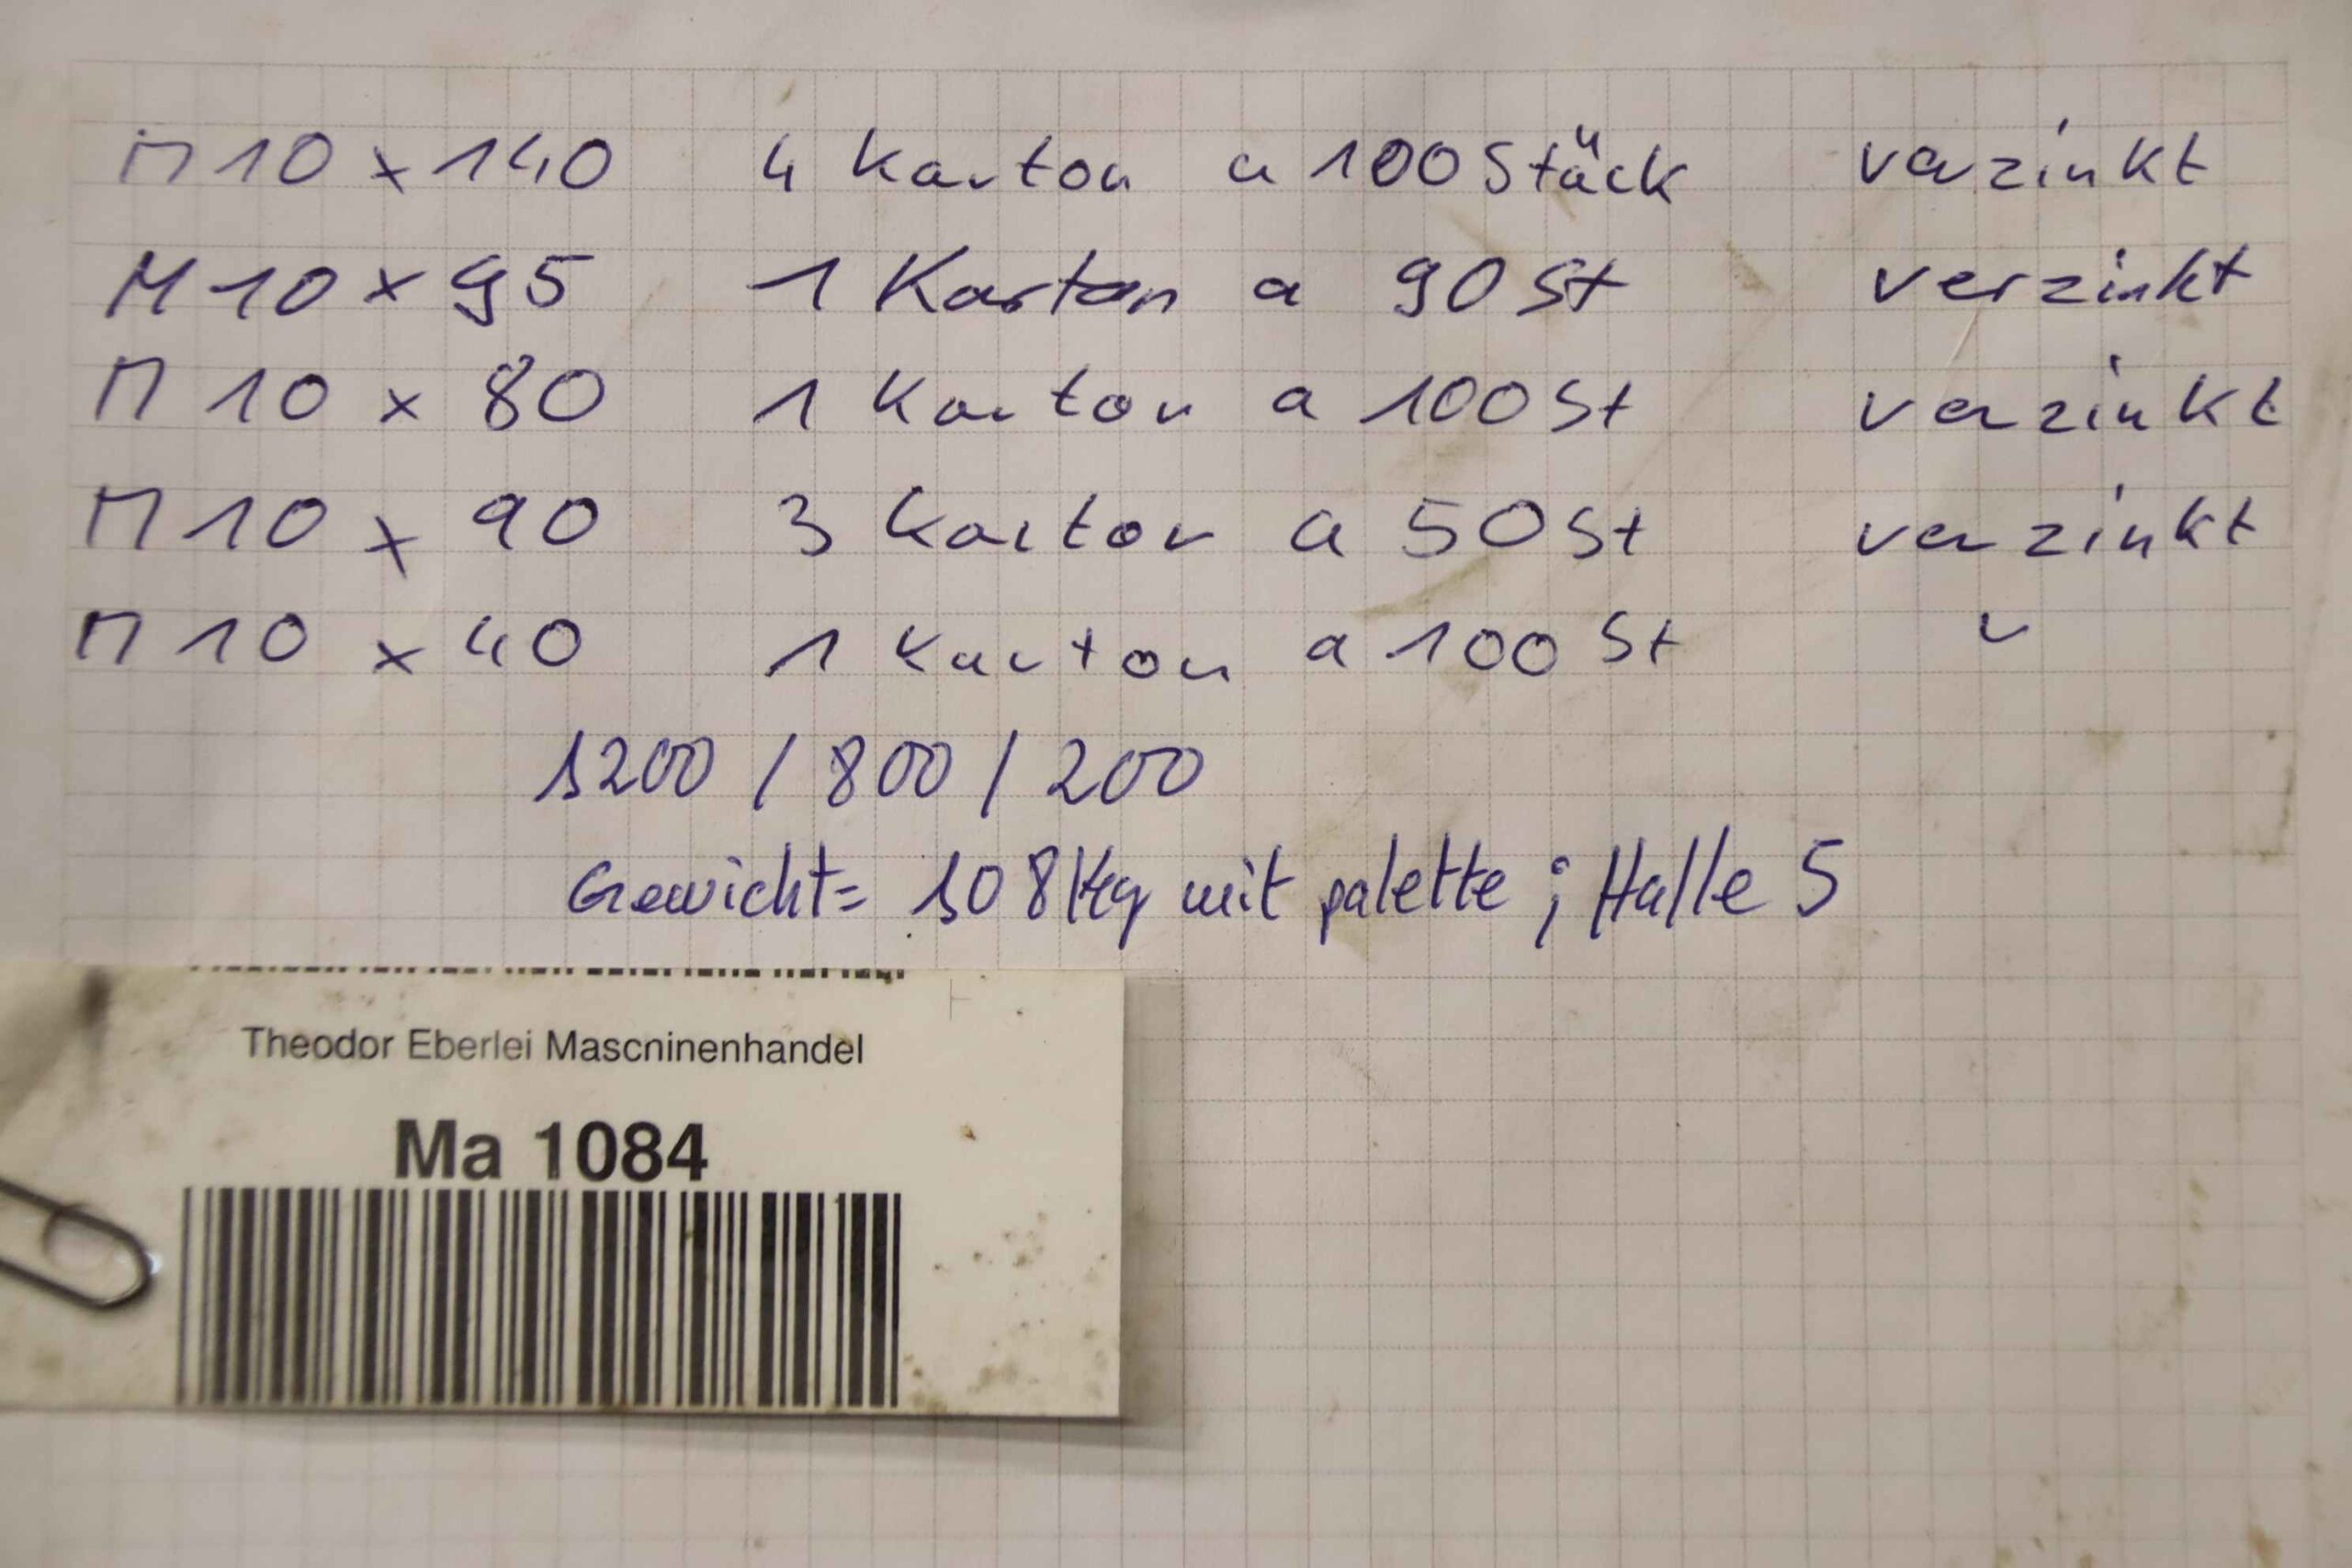 M 10 x 140 4 Karton a 100 Stück verzinkt
M 10 x 95 1 Karton a 90 St verzinkt
M 10 x 80 1 Karton a 100 St verzinkt
M 10 x 90 3 Karton a 50 St verzinkt
M 10 x 40 1 Karton a 100 St v
1200 / 800 / 200
Gewicht= 108 Kg mit palette ; Halle 5
Theodor Eberlei Mascninenhandel
Ma 1084